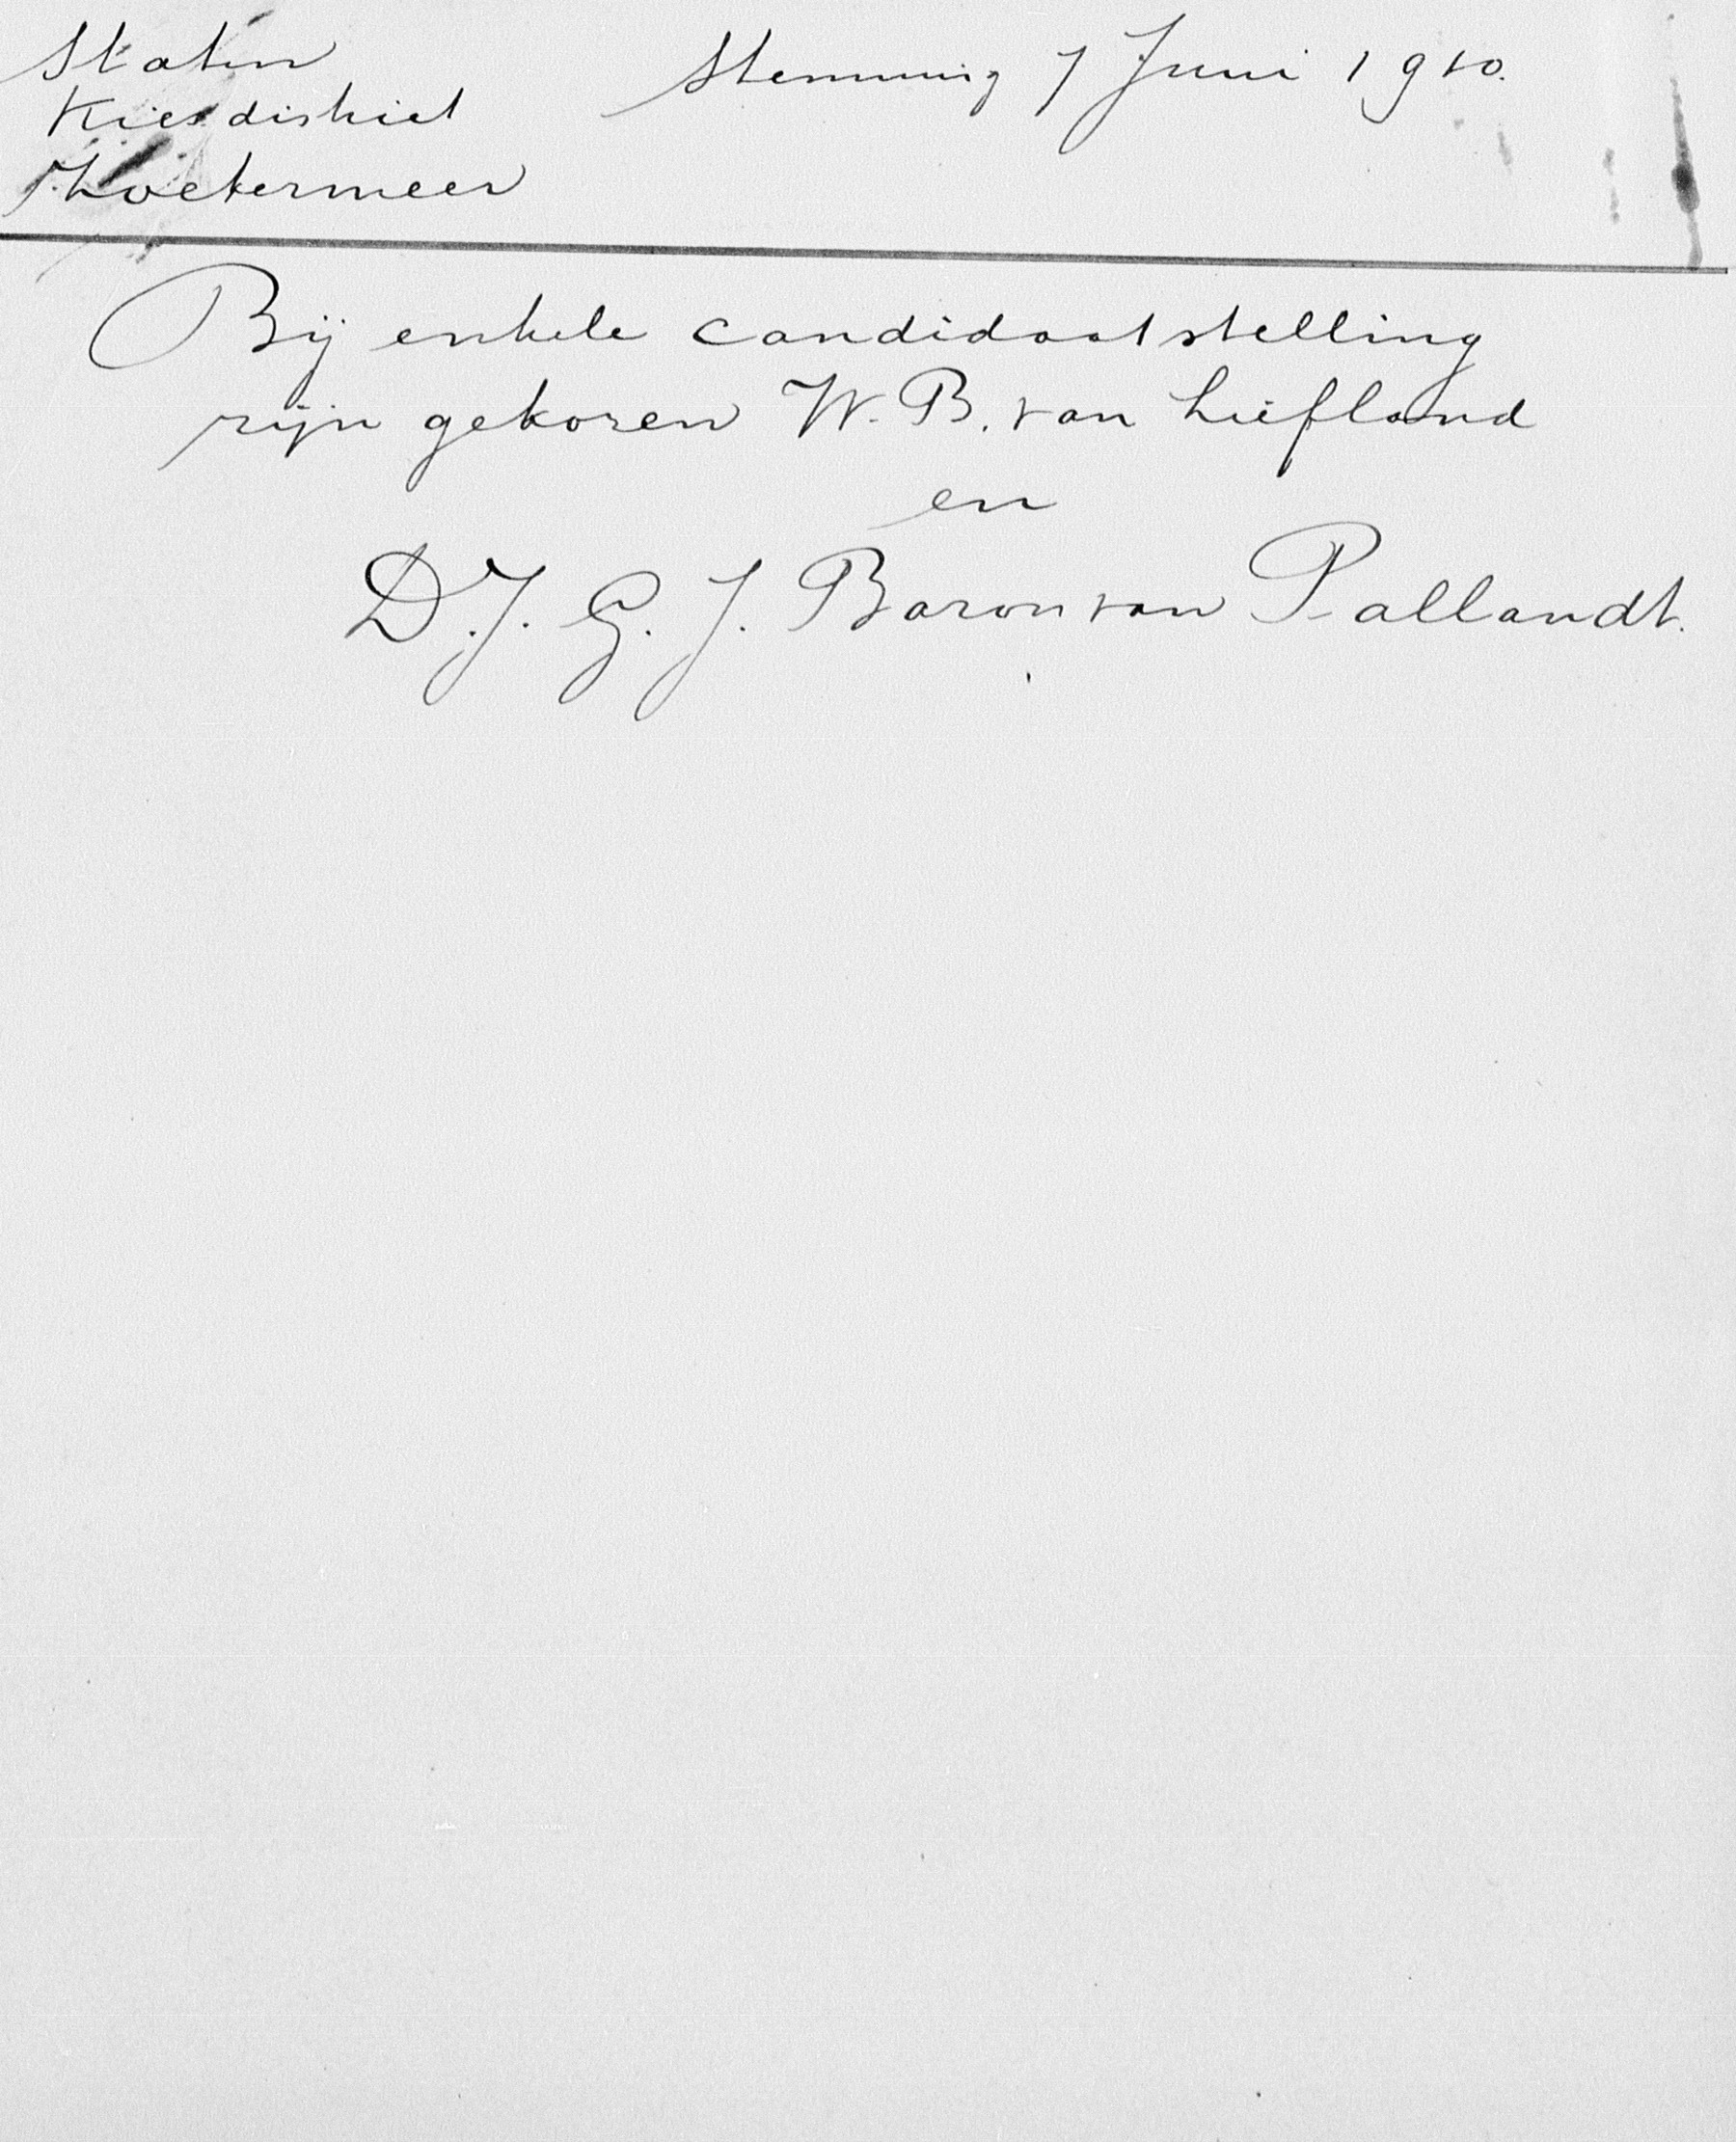 Staten
Kiesdistrict
Zoetermeer
Stemming 7 Juni 1910.
Bij enkele candidaatstelling
zijn gekozen W. B. van Liefland
en
D. J. G. J. Baron van Pallandt.